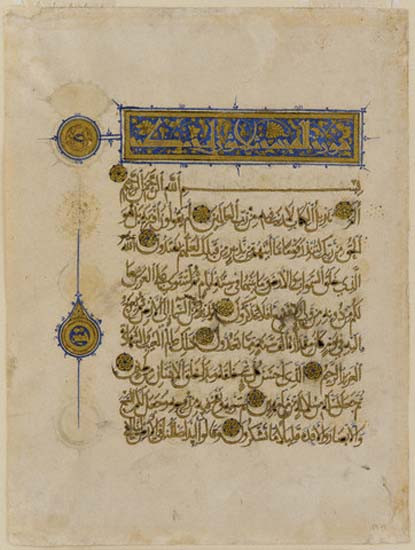 سورة السجدة
بسم الله الرحمن الرحيم
الم تنزيل الكتاب لا ريب فيه من رب العالمين أم يقولون افتريه بل هو
الحق من ربك لتنذر قوما ما أتيهم من نذير من قبلك لعلهم يهتدون الله
الذي خلق السموات والأرض وما بينهما في ستة أيام ثم استوى على العرش ما
لكم من دونه من ولي ولا شفيع أفلا تتذكرون يدبر الأمر من السماء إلى الأرض ثم يعرج
إليه في يوم كان مقداره ألف سنة مما تعدون ذلك عالم الغيب والشهادة
العزيز الرحيم الذي أحسن كل شيء خلقه وبدأ خلق الإنسان من طين
ثم جعل نسله من سلالة من ماء مهين ثم سويه ونفخ فيه من روحه وجعل لكم السمع
والأبصار والأفئدة قليلا ما تشكرون وقالوا أئذا ضللنا في الأرض